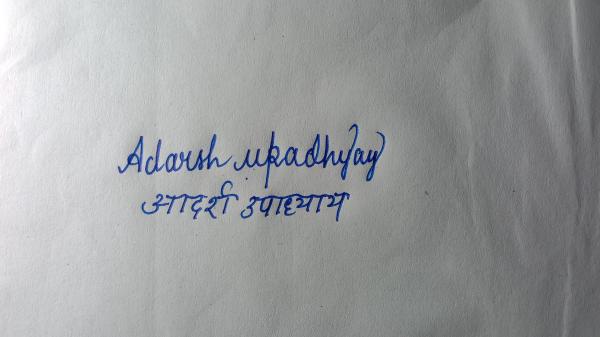 Adarsh upadhyay
आदर्श उपाध्याय